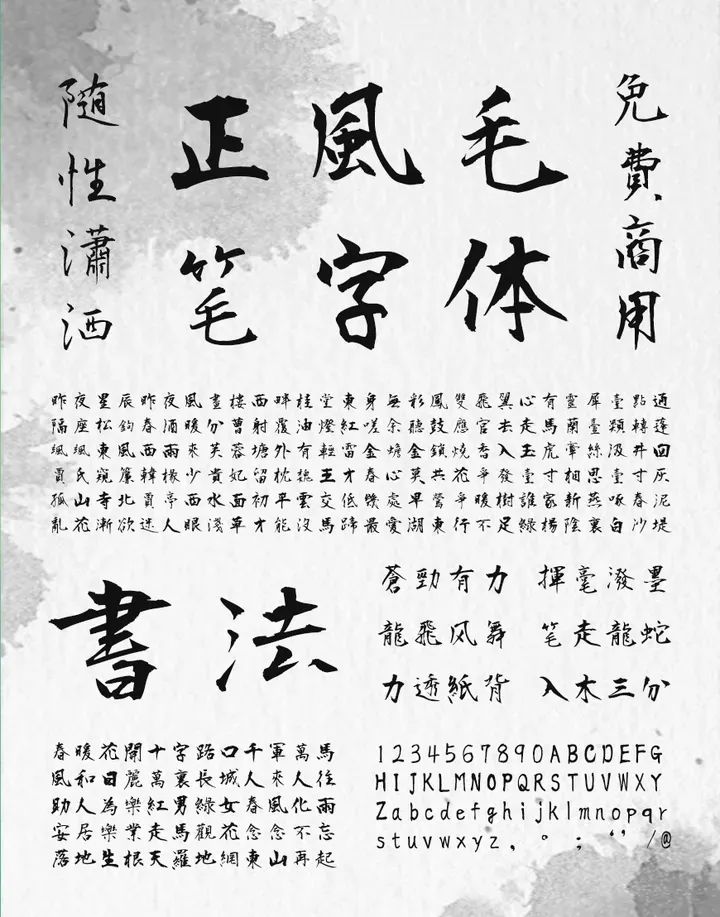 隨性瀟洒
正風毛
笔字体
免費商用
昨夜星辰昨夜風畫樓西畔桂堂東身無彩風雙飛翼心有靈犀臺點通
隔座松鈎春酒暖分曹射覆油燈紅嗟余聽鼓應官去走馬蘭臺類轉蓬
颯颯東風西雨來芙蓉塘外有輕雷金蟾金鎖燒香入玉虎牽絲汲井回
賈氏窺簾韓椽少貴妃留枕梳王才春心莫共花爭發臺寸相思臺寸灰
孤山寺北賈亭西水面初平雲交低幾處早鶯爭暖樹誰家新燕啄春泥
亂花漸欲迷人眼淺草才能沒馬蹄最愛湖東行不足綠楊陰裏白沙堤
書法
蒼勁有力 揮毫潑墨
龍飛风舞 笔走龍蛇
力透紙背 入木三分
春暖花開十字路口千軍萬馬
風和日麗萬裏長城人來人往
助人為樂紅男綠女春風化雨
安居樂業走馬觀花念念不忘
落地生根天羅地網東山再起
1234567890ABCDEFG
HIJKLMNOPQRSTUVWXY
Zabcdefghijklmnopqr
stuvwxyz,。;“”/@